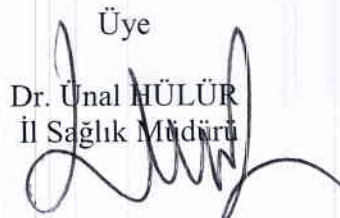 Üye
Dr. Ünal HÜLÜR
İl Sağlık Müdürü